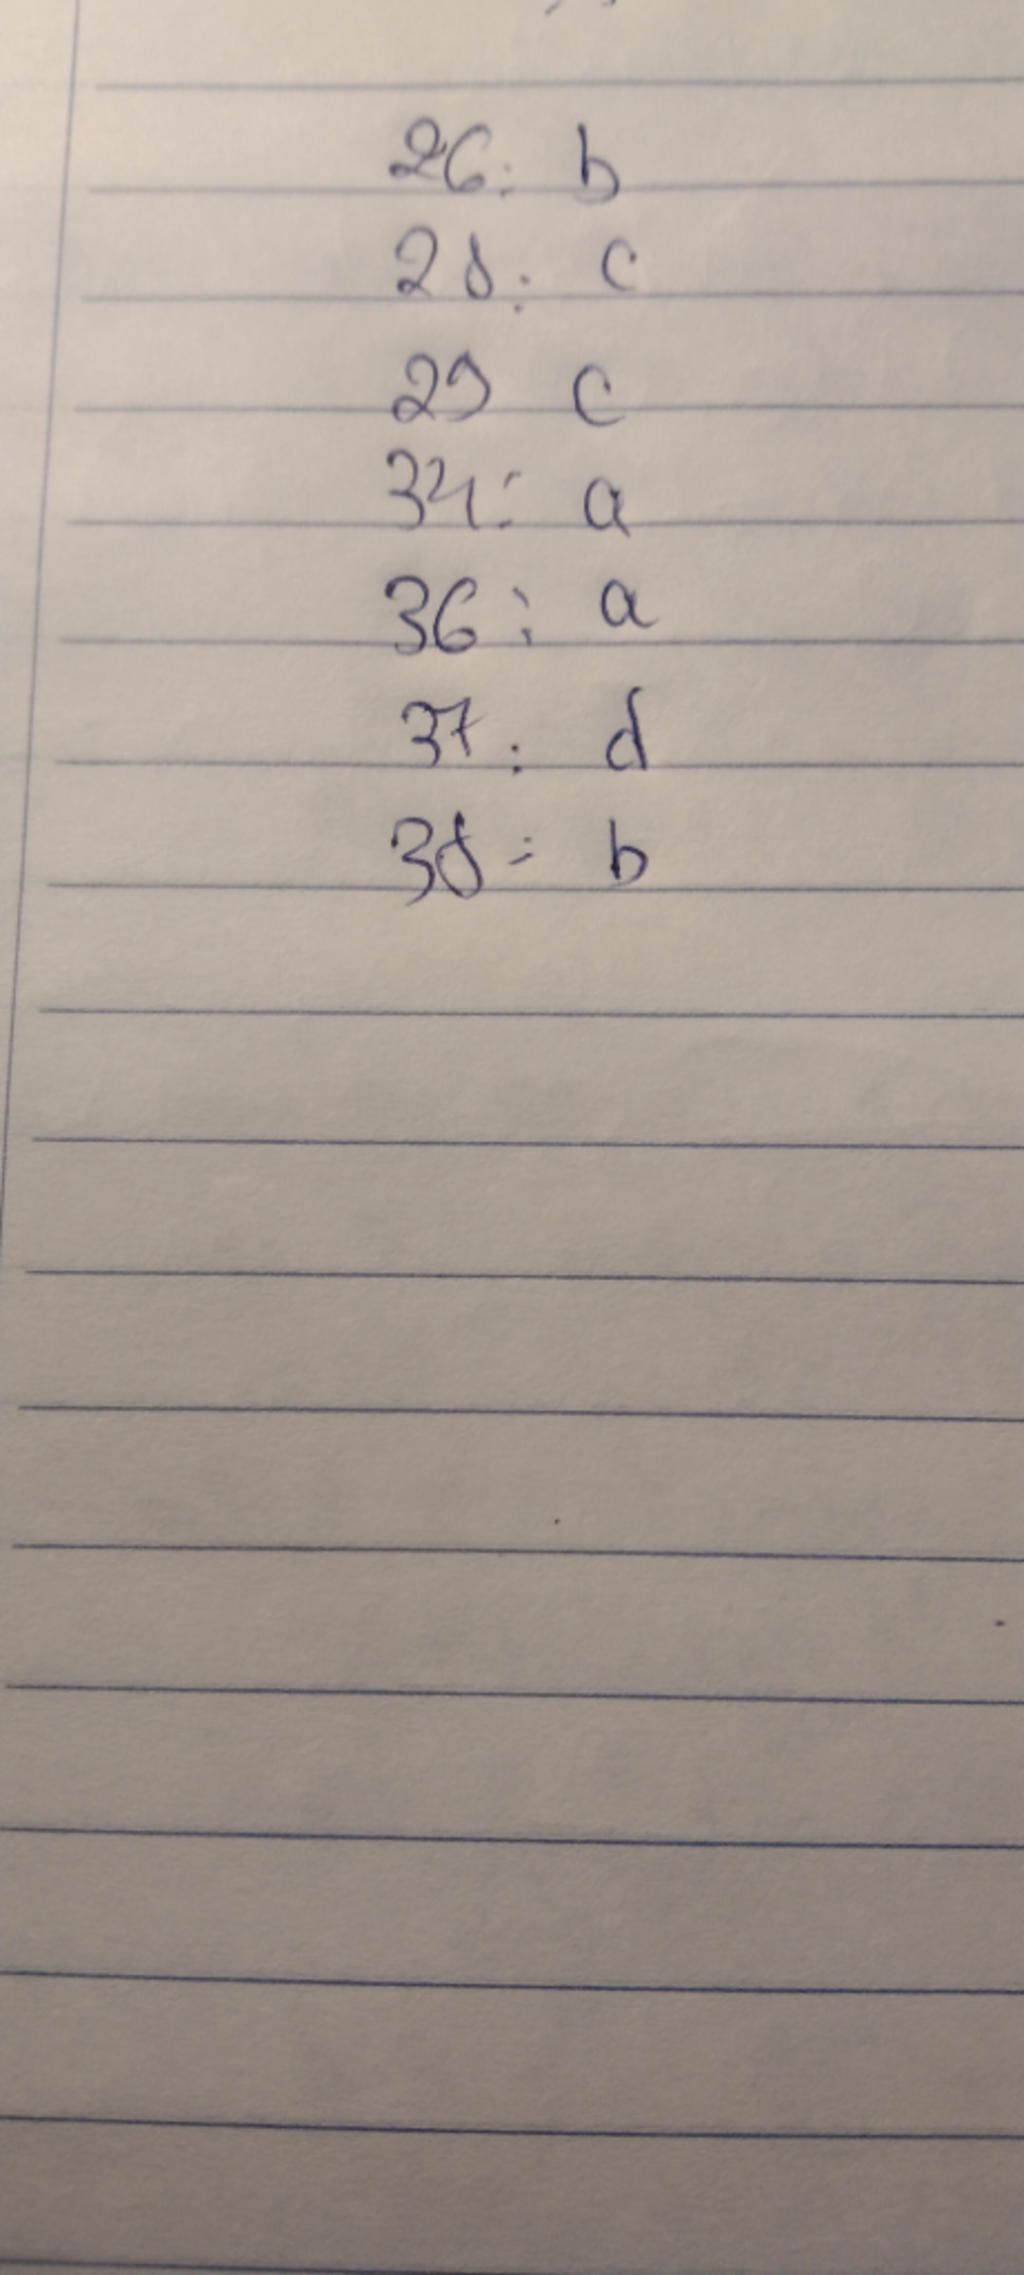 26: b
28: c
29 c
34: a
36: a
37: d
38: b